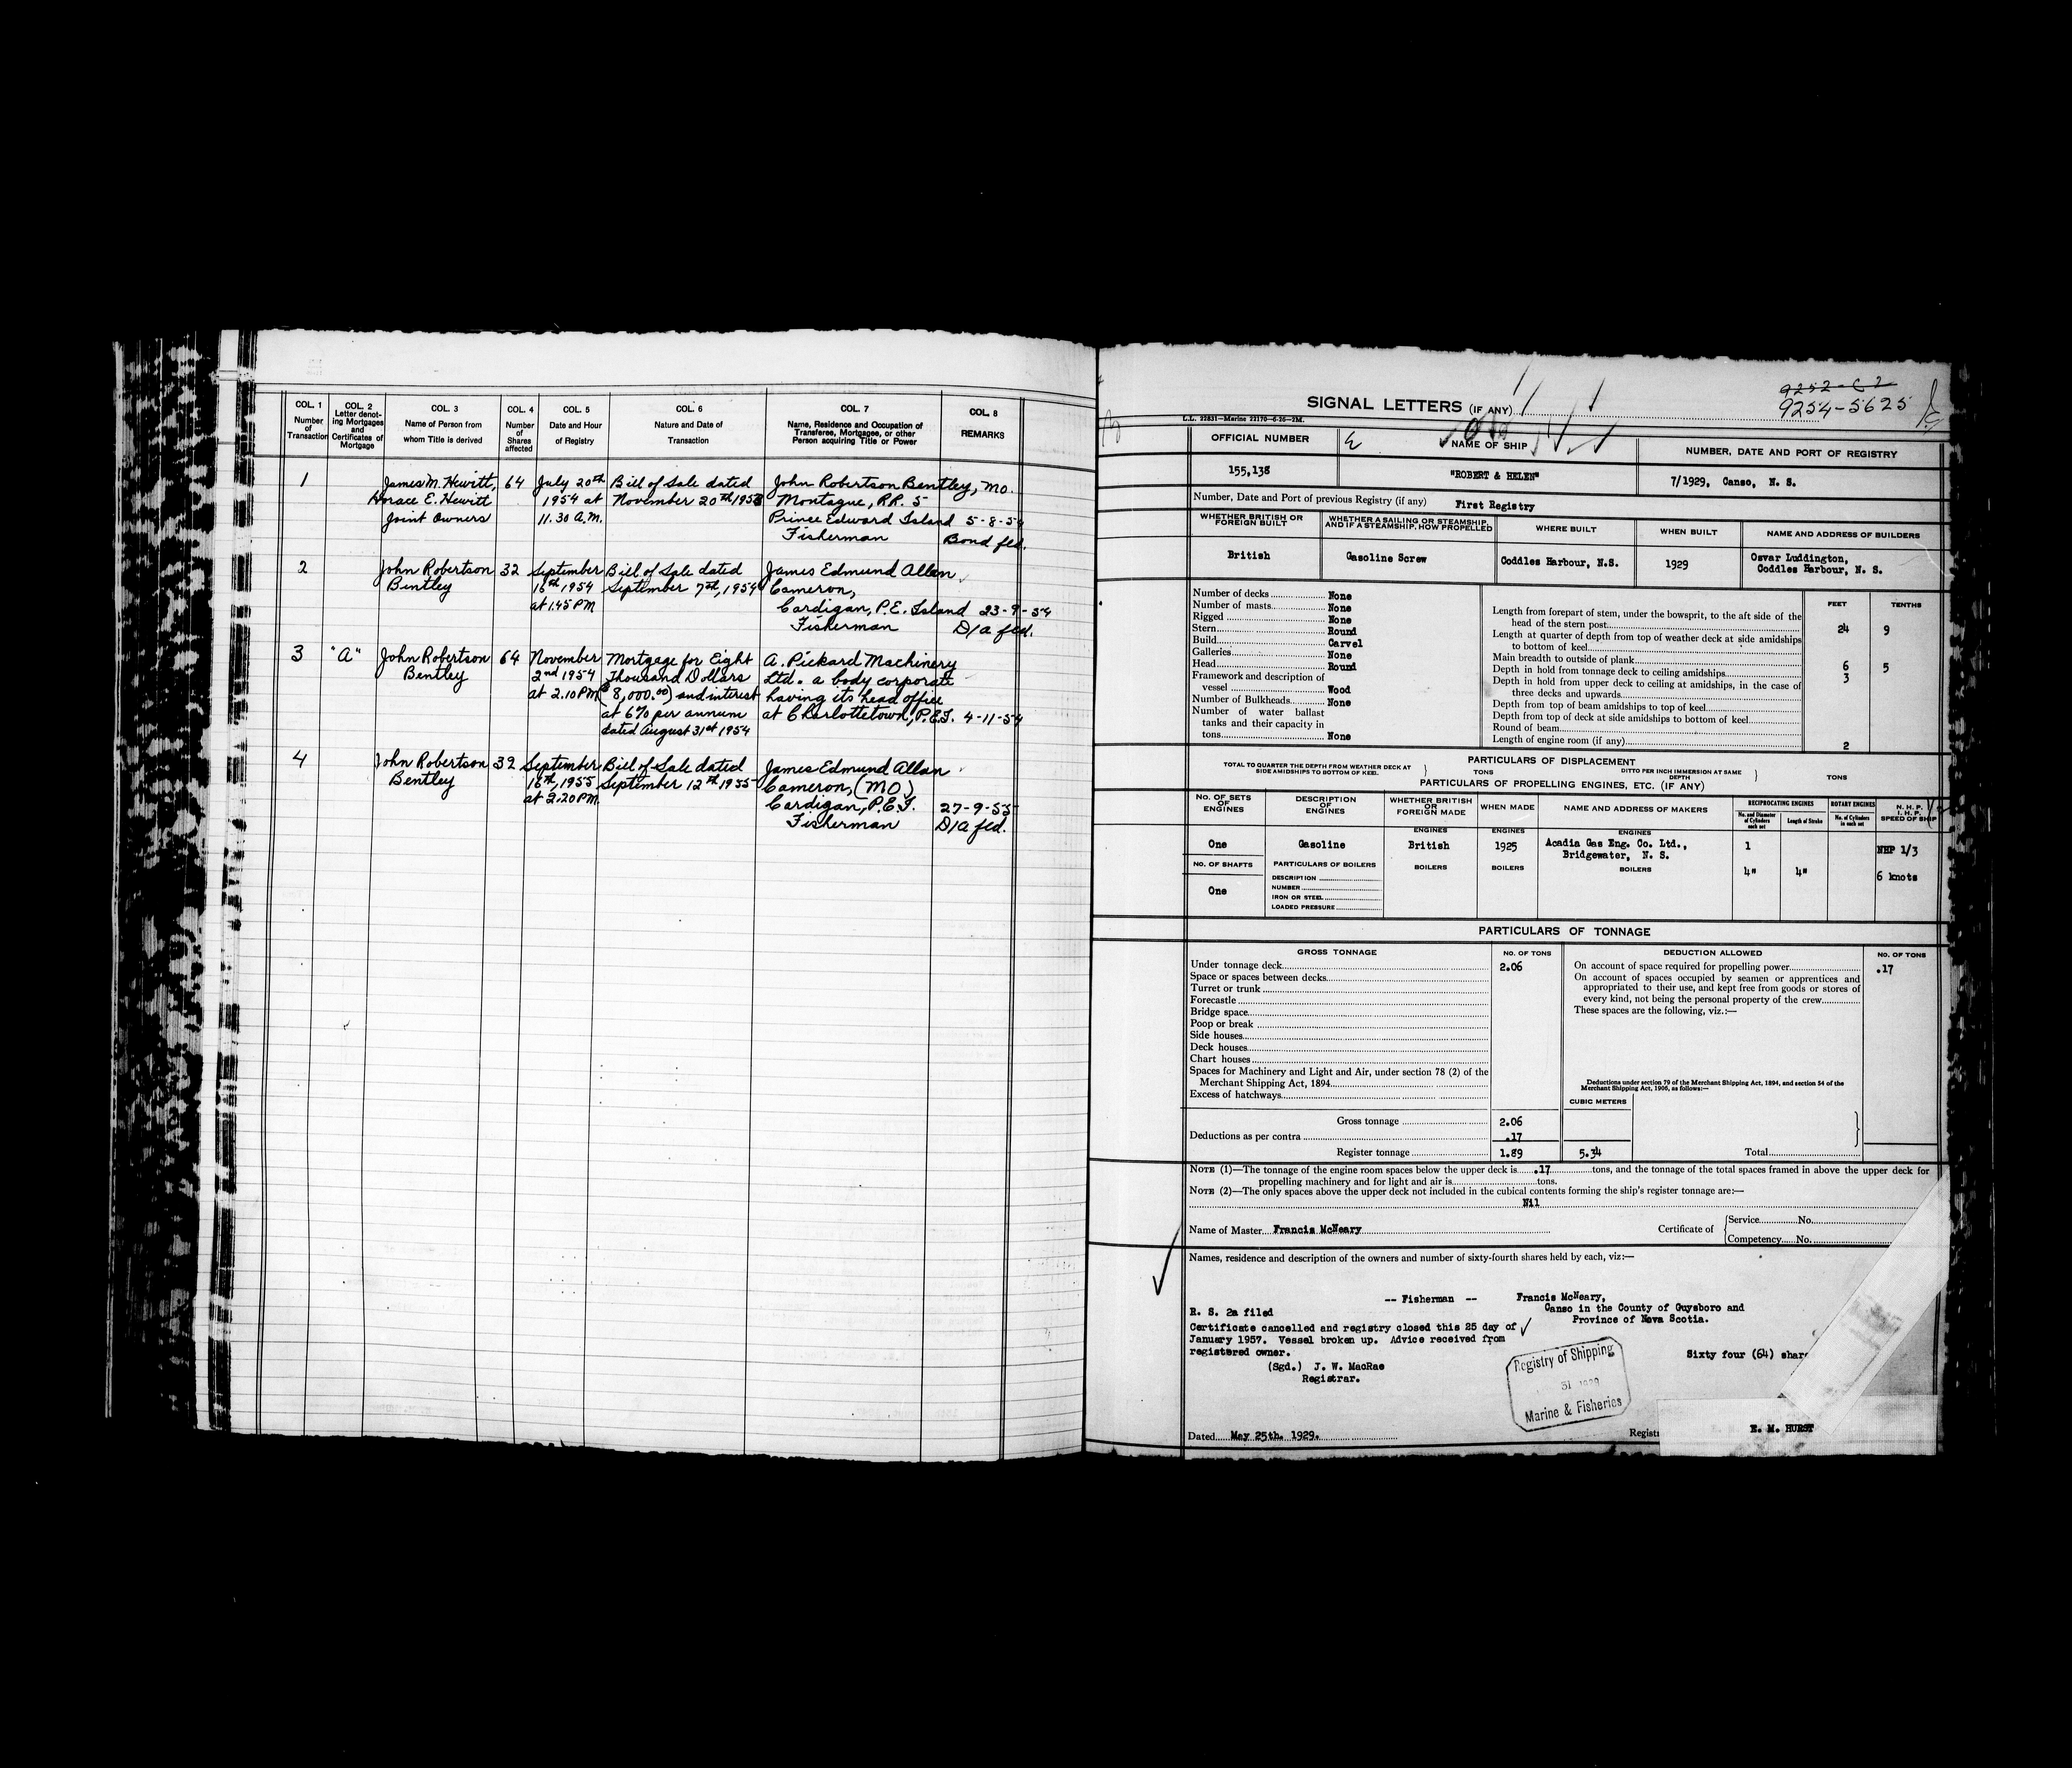 COL. 1 Number of Transaction
COL. 2 Letter denoting Mortgages and Certificates of Mortgage
COL. 3 Name of Person from whom Title is derived
COL. 4 Number of Shares affected
COL. 5 Date and Hour of Registry
COL. 6 Nature and Date of Transaction
COL. 7 Name, Residence and Occupation of Transferee, Mortgagee, or other Person acquiring Title or Power
COL. 8 REMARKS
1 James M. Hewitt, 64 July 20th Bill of Sale dated John Robertson Bentley, MO.
Horace E. Hewitt 1954 at November 20th 1953 Montague, RR. 5
Joint Owners 11.30 A.M. Prince Edward Island 5-8-54
Fisherman Bond fld.
2 John Robertson 32 September Bill of Sale dated James Edmund Allan
Bentley 16th 1954 September 7th, 1954 Cameron,
at 1.45 PM Cardigan, P.E. Island 23-9-54
Fisherman D/a fld.
3 "A" John Robertson 64 November Mortgage for Eight A. Pickard Machinery
Bentley 2nd 1954 Thousand Dollars Ltd. a body corporate
at 2.10 PM ($8,000.00) and interest having its head office
at 6% per annum at Charlottetown, P.E.I. 4-11-54
dated August 31st 1954
4 John Robertson 32 September Bill of Sale dated James Edmund Allan
Bentley 16th, 1955 September 12th 1955 Cameron, (MO)
at 2.20 PM. Cardigan, P.E.I. 27-9-55
Fisherman D/a fld.
9254-5625
SIGNAL LETTERS (IF ANY)
L.L. 22831—Marine 22170—6-26—2M.
OFFICIAL NUMBER NAME OF SHIP NUMBER, DATE AND PORT OF REGISTRY
155,138 "ROBERT & HELEN" 7/1929, Canso, N. S.
Number, Date and Port of previous Registry (if any) First Registry
WHETHER BRITISH OR FOREIGN BUILT
WHETHER A SAILING OR STEAMSHIP, AND IF A STEAMSHIP, HOW PROPELLED
WHERE BUILT
WHEN BUILT
NAME AND ADDRESS OF BUILDERS
British Gasoline Screw Coddles Harbour, N.S. 1929 Osvar Luddington,
Coddles Harbour, N. S.
Number of decks None
Number of masts None
Rigged None
Stern Round
Build Carvel
Galleries None
Head Round
Framework and description of
vessel Wood
Number of Bulkheads None
Number of water ballast
tanks and their capacity in
tons None
FEET TENTHS
Length from forepart of stem, under the bowsprit, to the aft side of the
head of the stern post 24 9
Length at quarter of depth from top of weather deck at side amidships
to bottom of keel
Main breadth to outside of plank 6 5
Depth in hold from tonnage deck to ceiling amidships 3
Depth in hold from upper deck to ceiling at amidships, in the case of
three decks and upwards
Depth from top of beam amidships to top of keel
Depth from top of deck at side amidships to bottom of keel
Round of beam
Length of engine room (if any) 2
PARTICULARS OF DISPLACEMENT
TOTAL TO QUARTER THE DEPTH FROM WEATHER DECK AT SIDE AMIDSHIPS TO BOTTOM OF KEEL } TONS
DITTO PER INCH IMMERSION AT SAME DEPTH } TONS
PARTICULARS OF PROPELLING ENGINES, ETC. (IF ANY)
NO. OF SETS OF ENGINES
DESCRIPTION OF ENGINES
WHETHER BRITISH OR FOREIGN MADE
WHEN MADE
NAME AND ADDRESS OF MAKERS
RECIPROCATING ENGINES
No. and Diameter of Cylinders each set
Length of Stroke
ROTARY ENGINES
No. of Cylinders in each set
N. H. P.
I. H. P.
SPEED OF SHIP
ENGINES ENGINES ENGINES
One Gasoline British 1925 Acadia Gas Eng. Co. Ltd., 1 NHP 1/3
Bridgewater, N. S.
NO. OF SHAFTS PARTICULARS OF BOILERS BOILERS BOILERS BOILERS 4" 4" 6 knots
One
DESCRIPTION
NUMBER
IRON OR STEEL
LOADED PRESSURE
PARTICULARS OF TONNAGE
GROSS TONNAGE NO. OF TONS DEDUCTION ALLOWED NO. OF TONS
Under tonnage deck 2.06
Space or spaces between decks
Turret or trunk
Forecastle
Bridge space
Poop or break
Side houses
Deck houses
Chart houses
Spaces for Machinery and Light and Air, under section 78 (2) of the
Merchant Shipping Act, 1894
Excess of hatchways
Gross tonnage 2.06
Deductions as per contra .17
Register tonnage 1.89
On account of space required for propelling power .17
On account of spaces occupied by seamen or apprentices and
appropriated to their use, and kept free from goods or stores of
every kind, not being the personal property of the crew
These spaces are the following, viz.:—
Deductions under section 79 of the Merchant Shipping Act, 1894, and section 54 of the
Merchant Shipping Act, 1906, as follows:—
CUBIC METERS
5.34 Total
NOTE (1)—The tonnage of the engine room spaces below the upper deck is .17 tons, and the tonnage of the total spaces framed in above the upper deck for
propelling machinery and for light and air is tons.
NOTE (2)—The only spaces above the upper deck not included in the cubical contents forming the ship's register tonnage are:—
Nil
Name of Master Francis McNeary Certificate of { Service No.
Competency No.
Names, residence and description of the owners and number of sixty-fourth shares held by each, viz:—
-- Fisherman -- Francis McNeary,
R. S. 2a filed Canso in the County of Guysboro and
Province of Nova Scotia.
Certificate cancelled and registry closed this 25 day of
January 1957. Vessel broken up. Advice received from
registered owner.
Sixty four (64) shar
(Sgd.) J. W. MacRae
Registrar.
Registry of Shipping
31 1929
Marine & Fisheries
Dated May 25th. 1929. Registr
E. M. HURST